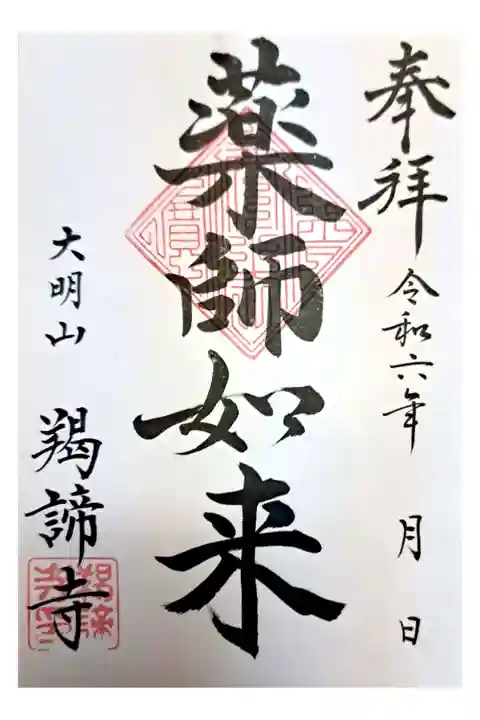 奉拝 令和六年 月 日
薬師如来
大明山 羯諦寺